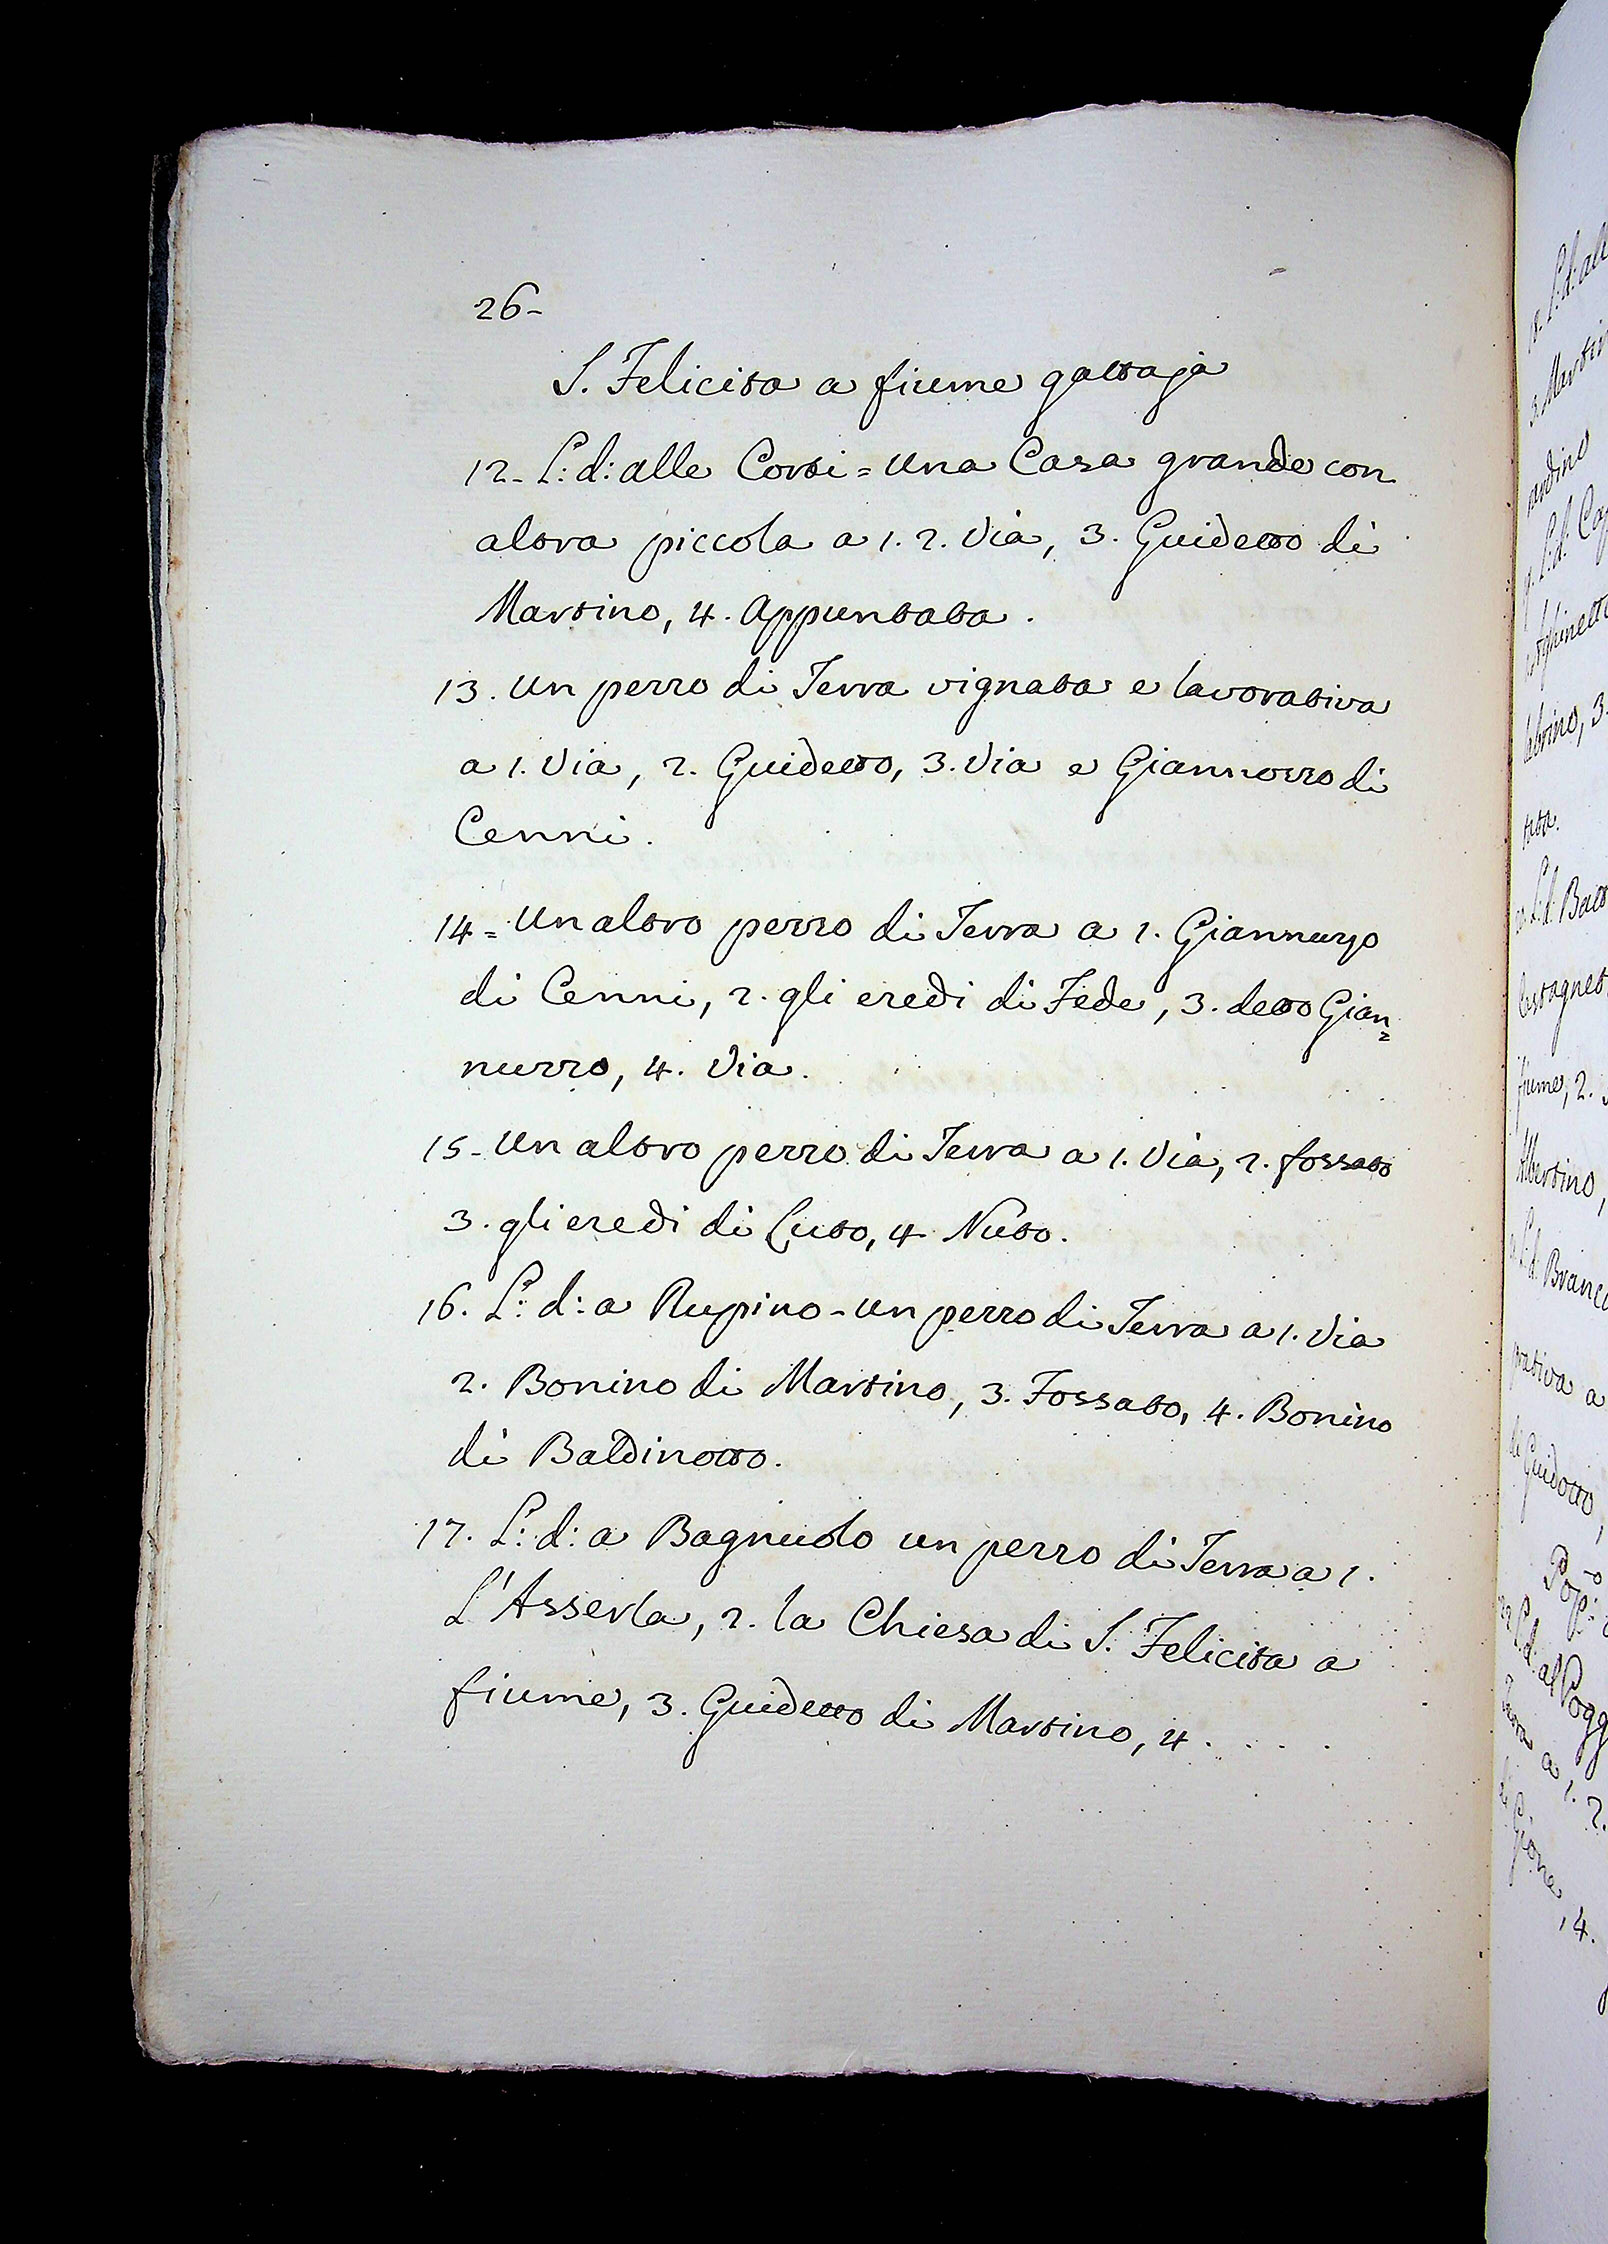 26-
S. Felicita a fiume gattaja
12- L: d: alle Corti = Una Casa grande con
altra piccola a 1. 2. Via, 3. Guidetto di
Martino, 4. Appuntata.
13. Un pezzo di Terra vignata e lavorativa
a 1. Via, 2. Guidetto, 3. Via e Giannozzo di
Cenni.
14 = Un altro pezzo di Terra a 1. Giannuzzo
di Cenni, 2. gli eredi di Fede, 3. detto Gian=
nuzzo, 4. Via.
15- Un altro pezzo di Terra a 1. Via, 2. fossato
3. gli eredi di Luto, 4. Nuto.
16. L: d: a Rupino - un pezzo di Terra a 1. Via
2. Bonino di Martino, 3. Fossato, 4. Bonino
di Baldinotto.
17. L: d: a Bagnuolo un pezzo di Terra a 1.
L'Asserla, 2. la Chiesa di S. Felicita a
fiume, 3. Guidetto di Martino, 4. . . .